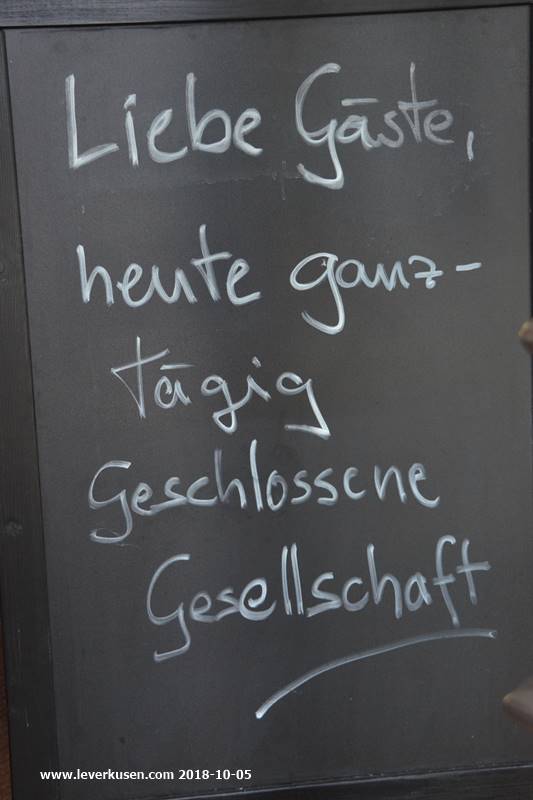 Liebe Gäste,
heute ganz-
tägig
Geschlossene
Gesellschaft
www.leverkusen.com 2018-10-05